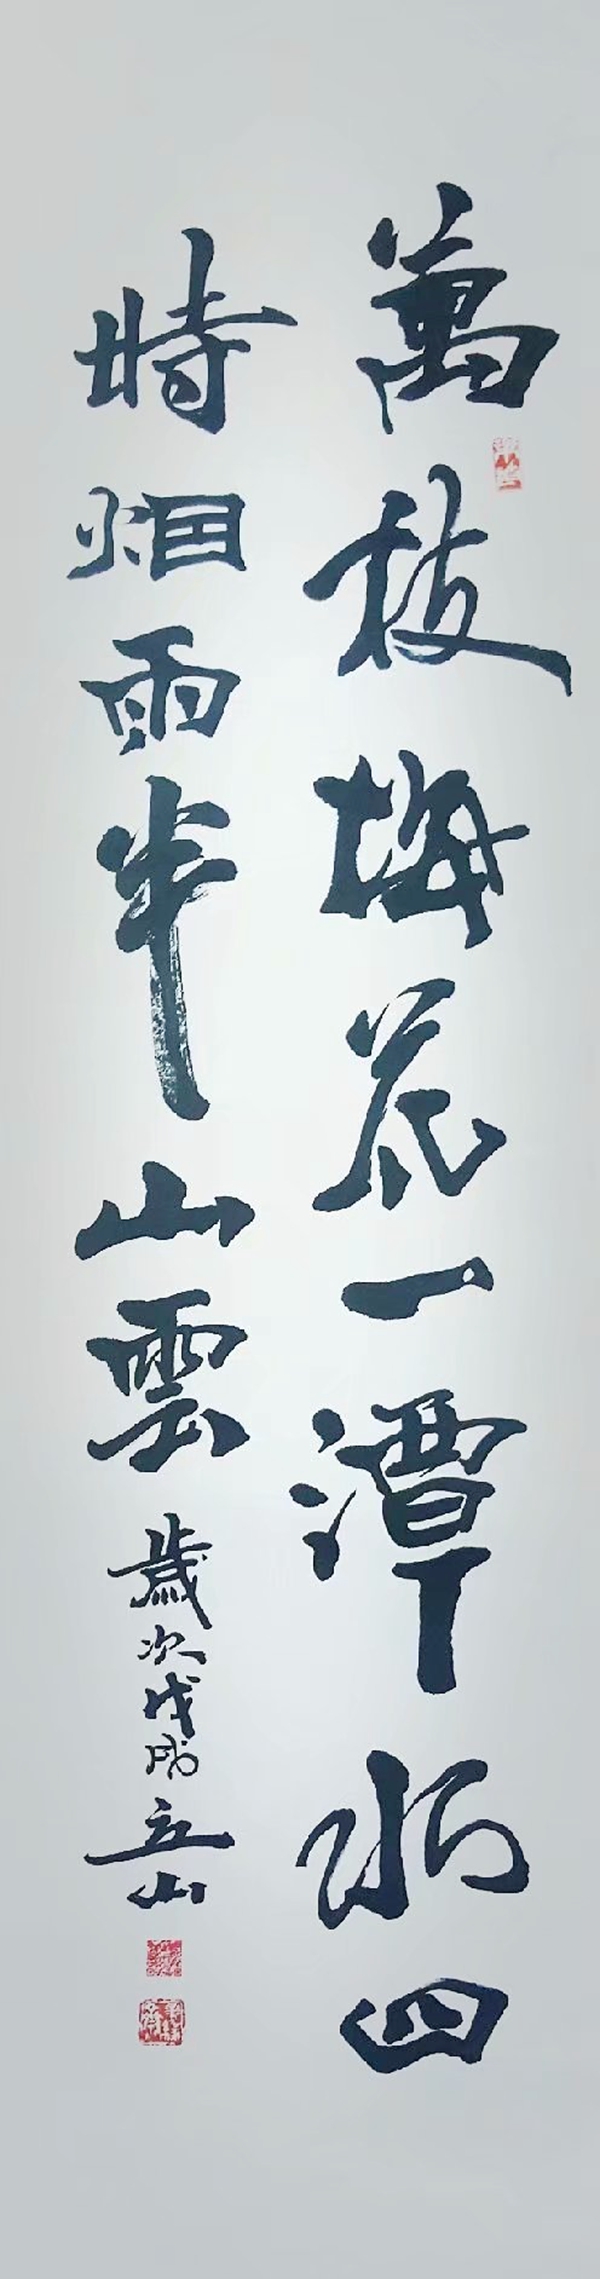 萬枝梅花一潭水四
時烟雨半山雲
歲次戊戌立山